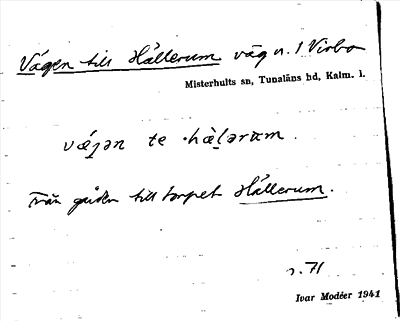 Vägen till Hällerum väg n. 1 Virbo
Misterhults sn, Tunaläns hd, Kalm. l.
te
från gården till torpet Hällerum.
s. 71
Ivar Modéer 1941